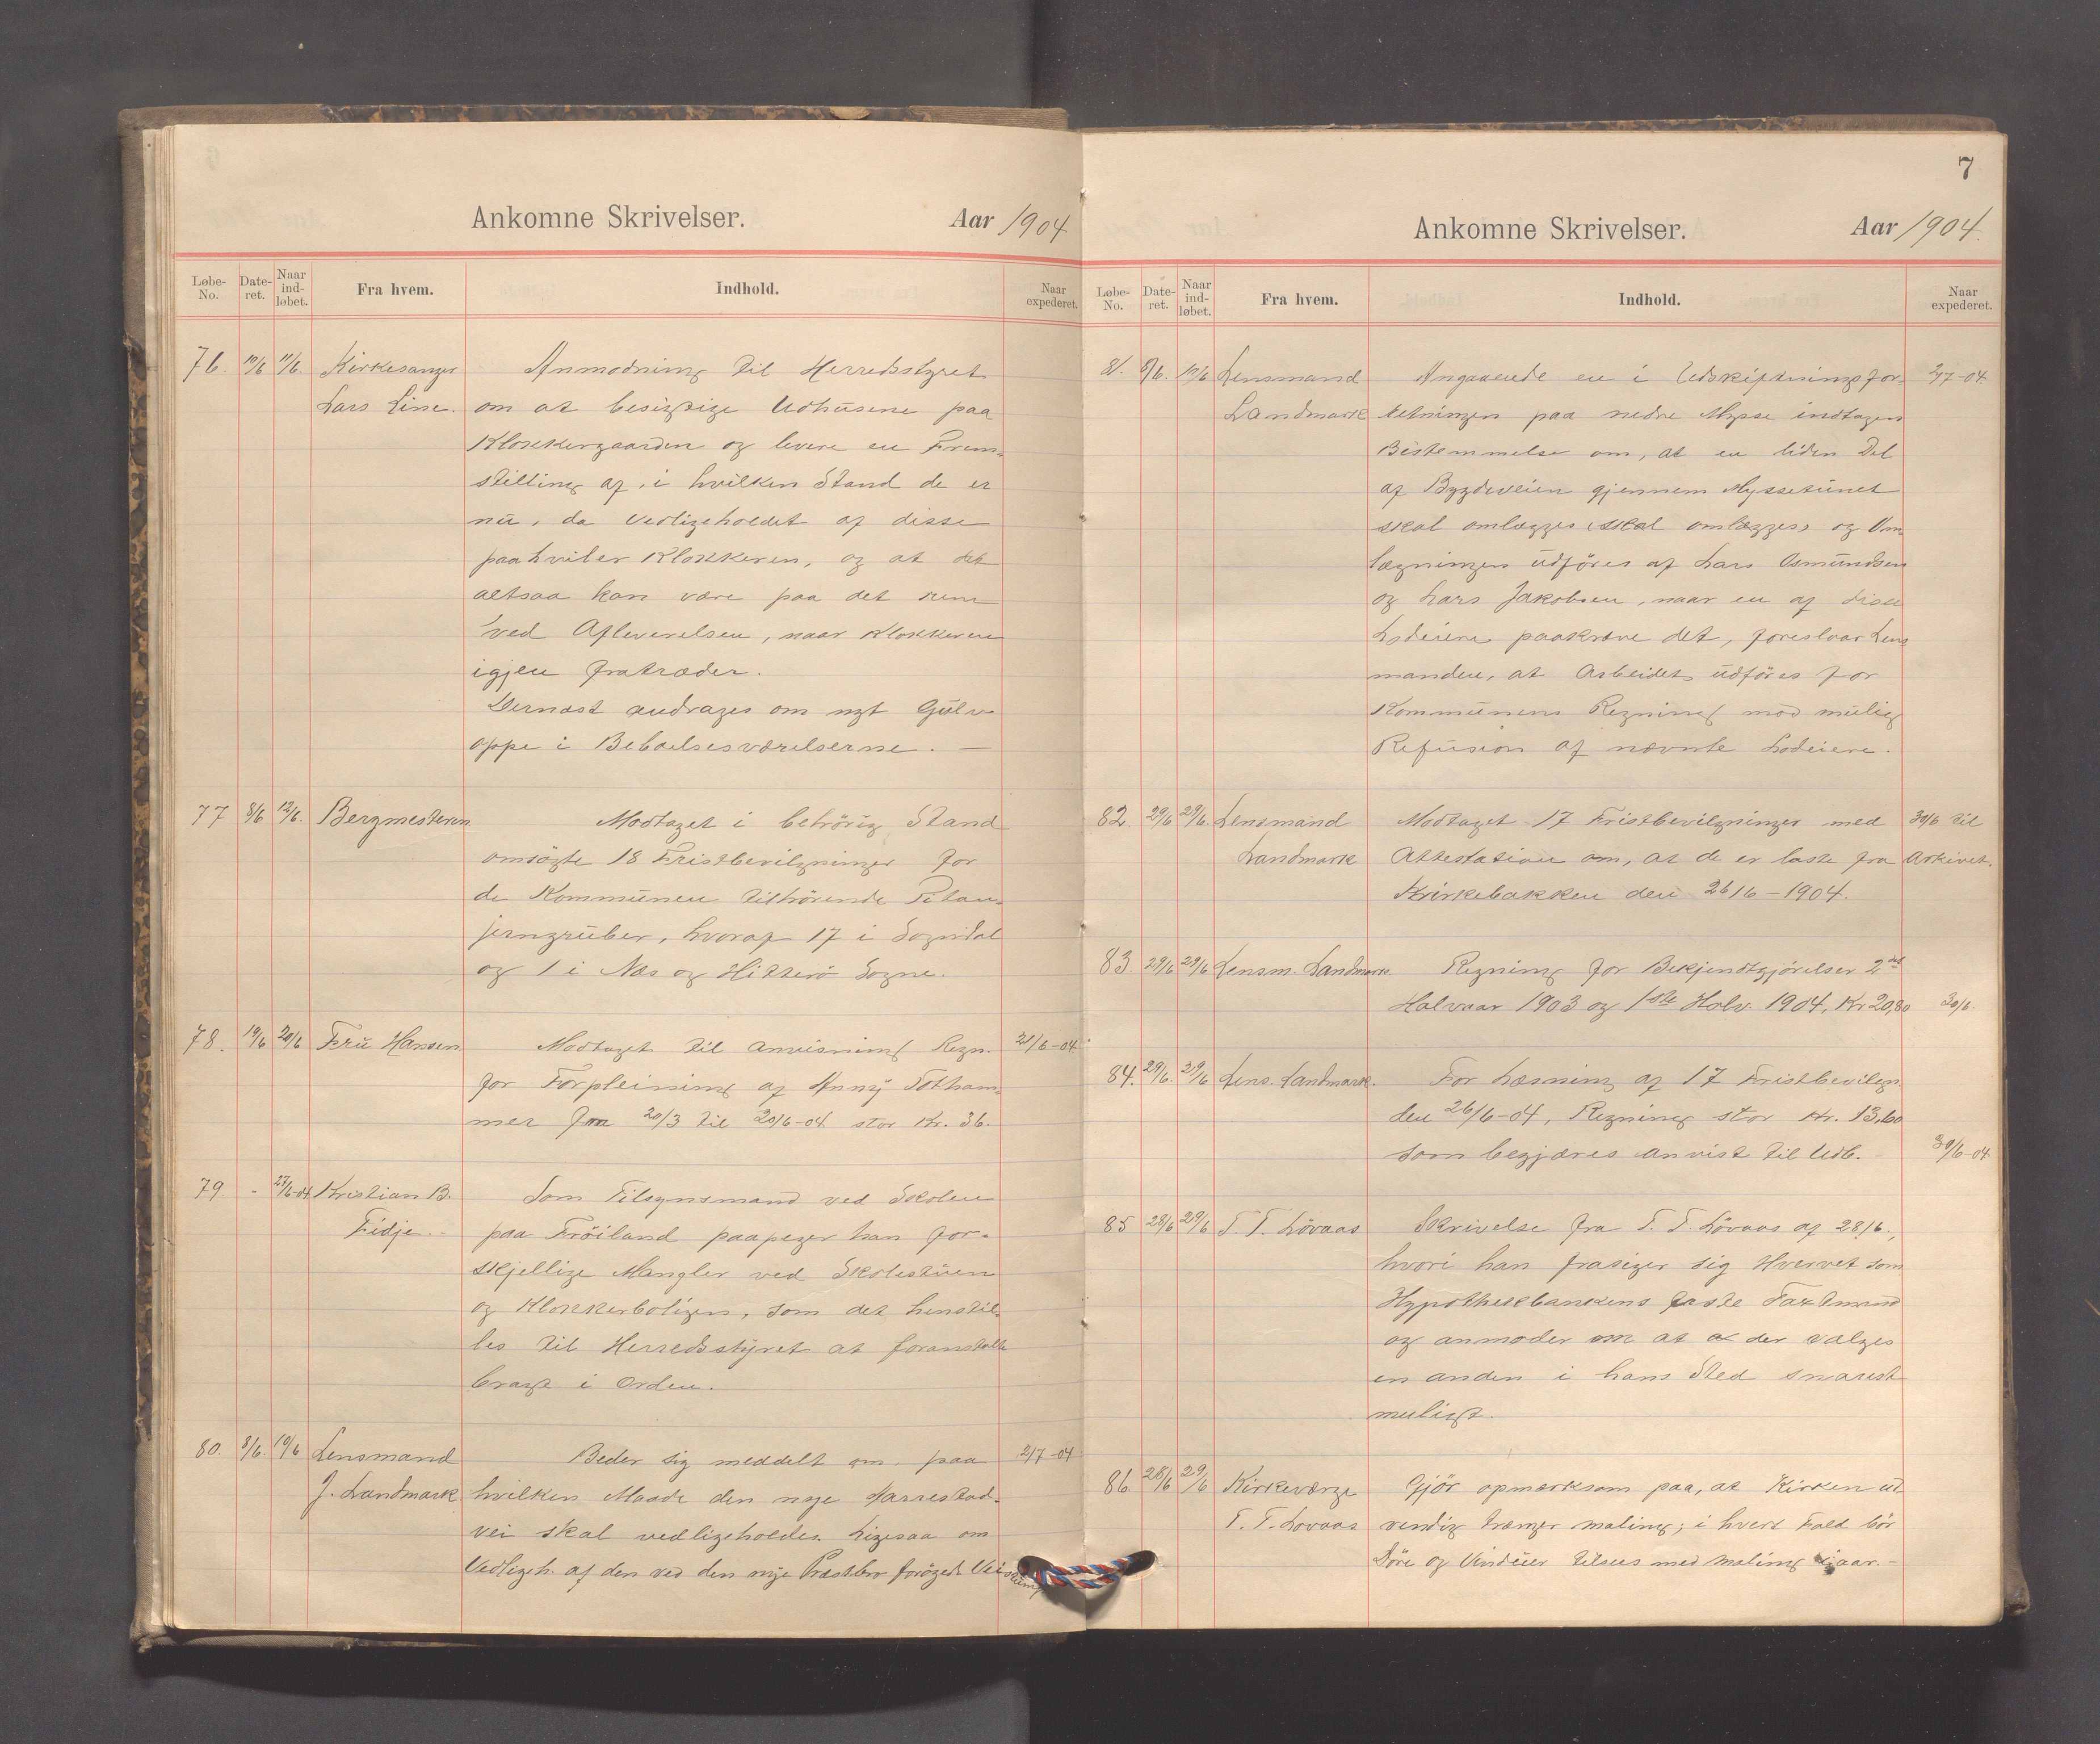 Ankomne Skrivelser. Aar 1904
Løbe-No. Date-ret. Naar ind-løbet. Fra hvem. Indhold. Naar expederet.
76. 10/6 11/6. Kirkesanger Anmodning til Herredsstyret
Lars Line. om at besigtige Udhusene paa
Klokkergaarden og levere en Frem-
stilling af, i hvilken Stand de er
nu, da Vedligeholdet af disse
paahviler Klokkeren, og at det
altsaa kan være paa det rene
ved Afleverelsen, naar Klokkeren
igjen fratræder.
Dernæst andrages om nyt Gulv
oppe i Beboelsesværelserne. —
77 8/6 12/6. Bergmesteren Modtaget i behörig Stand
omsögte 18 Fristbevilgninger for
de Kommunen tilhörende Titan-
jerngruber, hvoraf 17 i Sogndal
og 1 i Nes og Hitterö Sogne.
78. 19/6 20/6 Fru Hansen Modtaget til anvisning Regn. 21/6-04
for Forpleining af Anny Totham-
mer fra 20/3 til 20/6-04 stor Kr. 36.
79 - 27/6-04 Kristian B. Som Tilsynsmand ved Skolen
Fidje. paa Fröiland paapeger han for-
skjellige Mangler ved Skolestuen
og Klokkerboligen, som det henstil-
les til Herredsstyret at foranstalte
bragt i Orden.
80. 8/6. 10/6 Lensmand Beder sig meddelt om paa 2/7-04
J. Landmark hvilken Maade den nye Aarrestad-
vei skal vedligeholdes. Ligesaa om
Vedligeh. af den ved den nye Præstbro forögede Veistump
7
Ankomne Skrivelser. Aar 1904.
Løbe-No. Date-ret. Naar ind-løbet. Fra hvem. Indhold. Naar expederet.
81. 8/6. 10/6 Lensmand Angaaende en i Udskiftningsfor- 2/7-04
Landmark retningen paa nedre Mysse indtagen
Bestemmelse om, at en liden Del
af Bygdeveien gjennem Myssetunet
skal omlægges (skal omlægges) og Om
lægningen udföres af Lars Osmundsen
og Lars Jakobsen, naar en af disse
Lodeiere paakræve det, foreslaar Lens
manden, at Arbeidet udföres for
Kommunens Regning mod mulig
Refusion af nævnte Lodeiere.
82. 29/6 29/6. Lensmand Modtaget 17 Fristbevilgninger med 30/6 til
Landmark Attestation om, at de er læste fra Arkivet.
Kirkebakken den 26/6-1904.
83. 29/6 29/6 Lensm. Landmark Regning for Bekjendtgjörelser 2det
Halvaar 1903 og 1ste Halv. 1904, Kr 20,80 30/6.
84. 29/6. 29/6 Lens. Landmark. For Læsning af 17 Fristbevilgn.
den 26/6-04, Regning stor Kr. 13,60
som begjæres anvist til Udb. 30/6-04
85 28/6 29/6 T. T. Lövaas Skrivelse fra T. T. Lövaas af 28/6.,
hvori han frasiger sig Hvervet som
Hypothekbankens faste Taxtmand
og anmoder om at der vælges
en anden i hans Sted snarest
muligt.
86. 28/6 29/6 Kirkeværge Gjör opmærksom paa, at Kirken ud
T. T. Lovaas vendig trænger maling; i hvert Fald bör
Döre og Vinduer tilsees med maling iaar. -